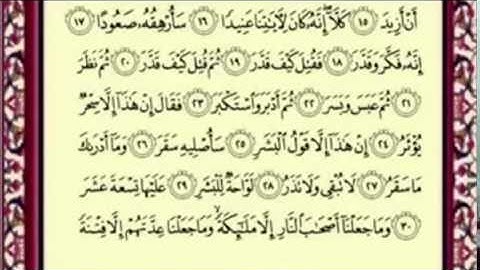 أَنْ أَزِيدَ ١٥ كَلَّا إِنَّهُ كَانَ لِآيَاتِنَا عَنِيدًا ١٦ سَأُرْهِقُهُ صَعُودًا ١٧
إِنَّهُ فَكَّرَ وَقَدَّرَ ١٨ فَقُتِلَ كَيْفَ قَدَّرَ ١٩ ثُمَّ قُتِلَ كَيْفَ قَدَّرَ ٢٠ ثُمَّ نَظَرَ
٢١ ثُمَّ عَبَسَ وَبَسَرَ ٢٢ ثُمَّ أَدْبَرَ وَاسْتَكْبَرَ ٢٣ فَقَالَ إِنْ هَٰذَا إِلَّا سِحْرٌ
يُؤْثَرُ ٢٤ إِنْ هَٰذَا إِلَّا قَوْلُ الْبَشَرِ ٢٥ سَأُصْلِيهِ سَقَرَ ٢٦ وَمَا أَدْرَىٰكَ
مَا سَقَرُ ٢٧ لَا تُبْقِي وَلَا تَذَرُ ٢٨ لَوَّاحَةٌ لِلْبَشَرِ ٢٩ عَلَيْهَا تِسْعَةَ عَشَرَ
٣٠ وَمَا جَعَلْنَا أَصْحَٰبَ النَّارِ إِلَّا مَلَٰٓئِكَةً وَمَا جَعَلْنَا عِدَّتَهُمْ إِلَّا فِتْنَةً